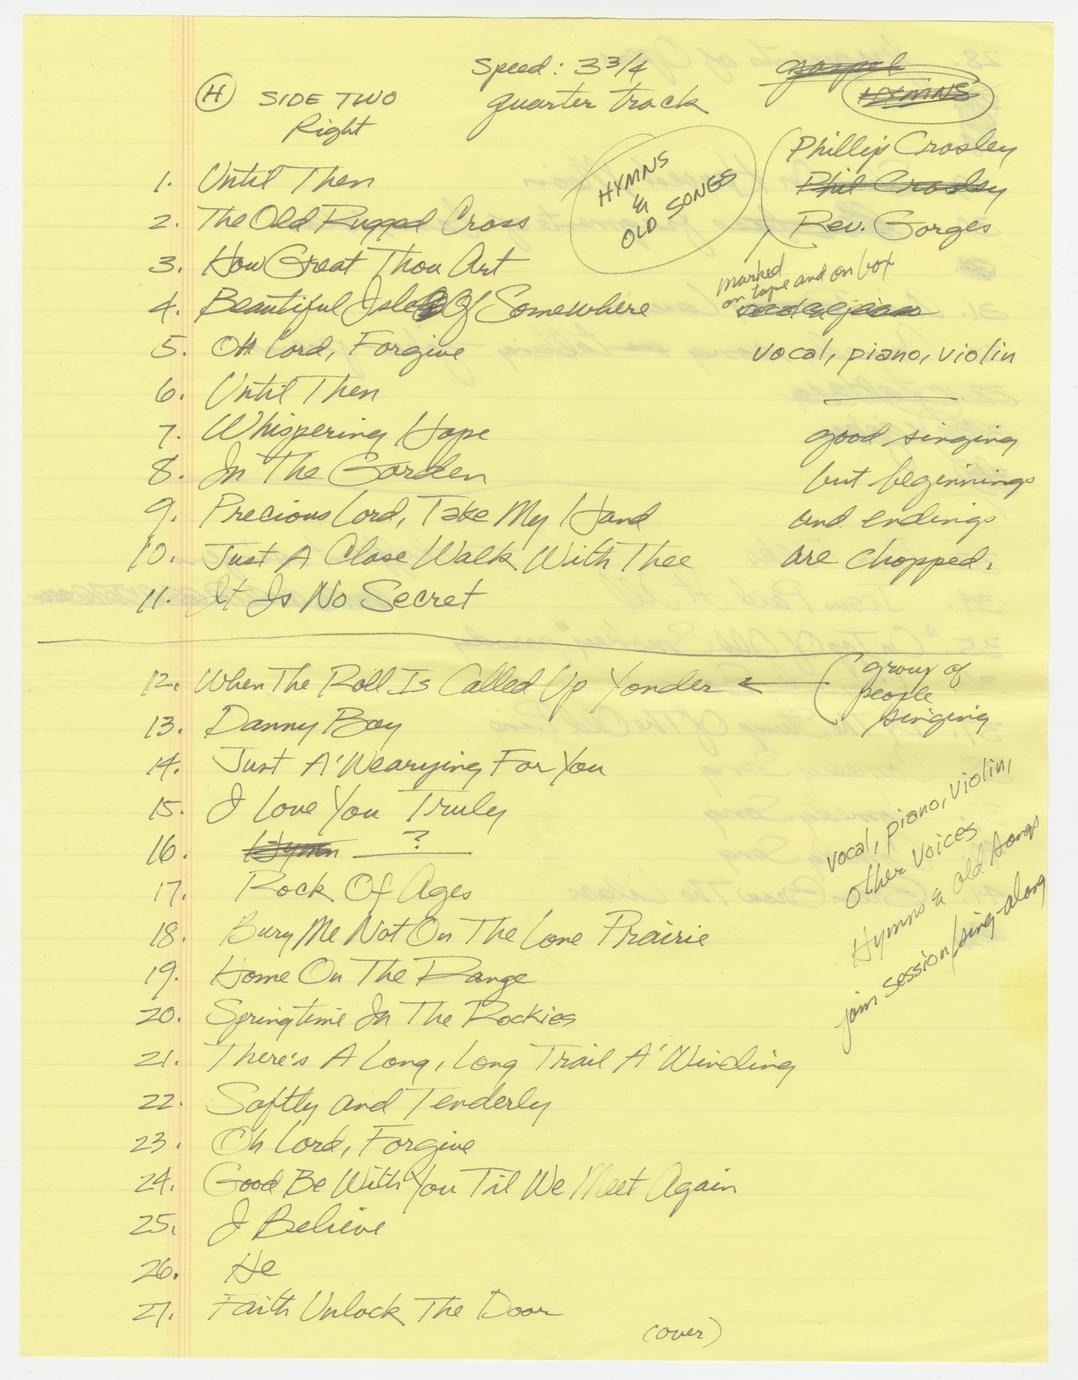 Speed: 3 3/4
quarter track
gospel
HYMNS
H SIDE TWO
Right
HYMNS
&
OLD SONGS
Phillip Crosley
Phil Crosley
Rev. Gorges
marked
on tape and on box
vocal, piano, violin
good singing
but beginnings
and endings
are chopped.
1. Until Then
2. The Old Rugged Cross
3. How Great Thou Art
4. Beautiful Isle Of Somewhere
5. Oh Lord, Forgive
6. Until Then
7. Whispering Hope
8. In The Garden
9. Precious Lord, Take My Hand
10. Just A Close Walk With Thee
11. It Is No Secret
12. When The Roll Is Called Up Yonder ←
group of
people
singing
13. Danny Boy
14. Just A'Wearying For You
15. I Love You Truly
16. Hymn ?
17. Rock Of Ages
18. Bury Me Not On The Lone Prairie
19. Home On The Range
20. Springtime In The Rockies
21. There's A Long, Long Trail A'Winding
22. Softly and Tenderly
23. Oh Lord, Forgive
24. Good Be With You Til We Meet Again
25. I Believe
26. He
27. Faith Unlock The Door
vocal, piano, violin,
other voices
Hymns & old songs
jam session/sing-along
(over)